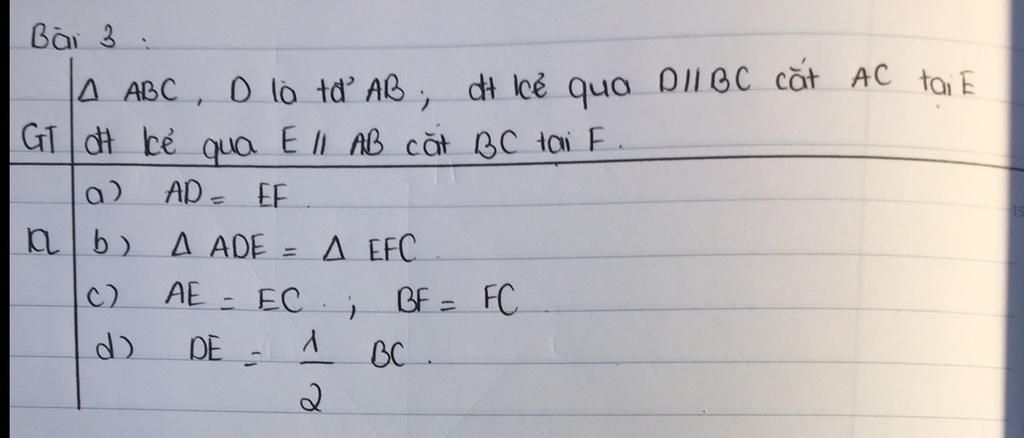 Bài 3 :
Δ ABC, D là tđ AB ; đt kẻ qua D // BC cắt AC tại E
GT đt kẻ qua E // AB cắt BC tai F.
a) AD = EF.
KL b) Δ ADE = Δ EFC.
c) AE = EC. ; BF = FC
d) DE = 1/2 BC.